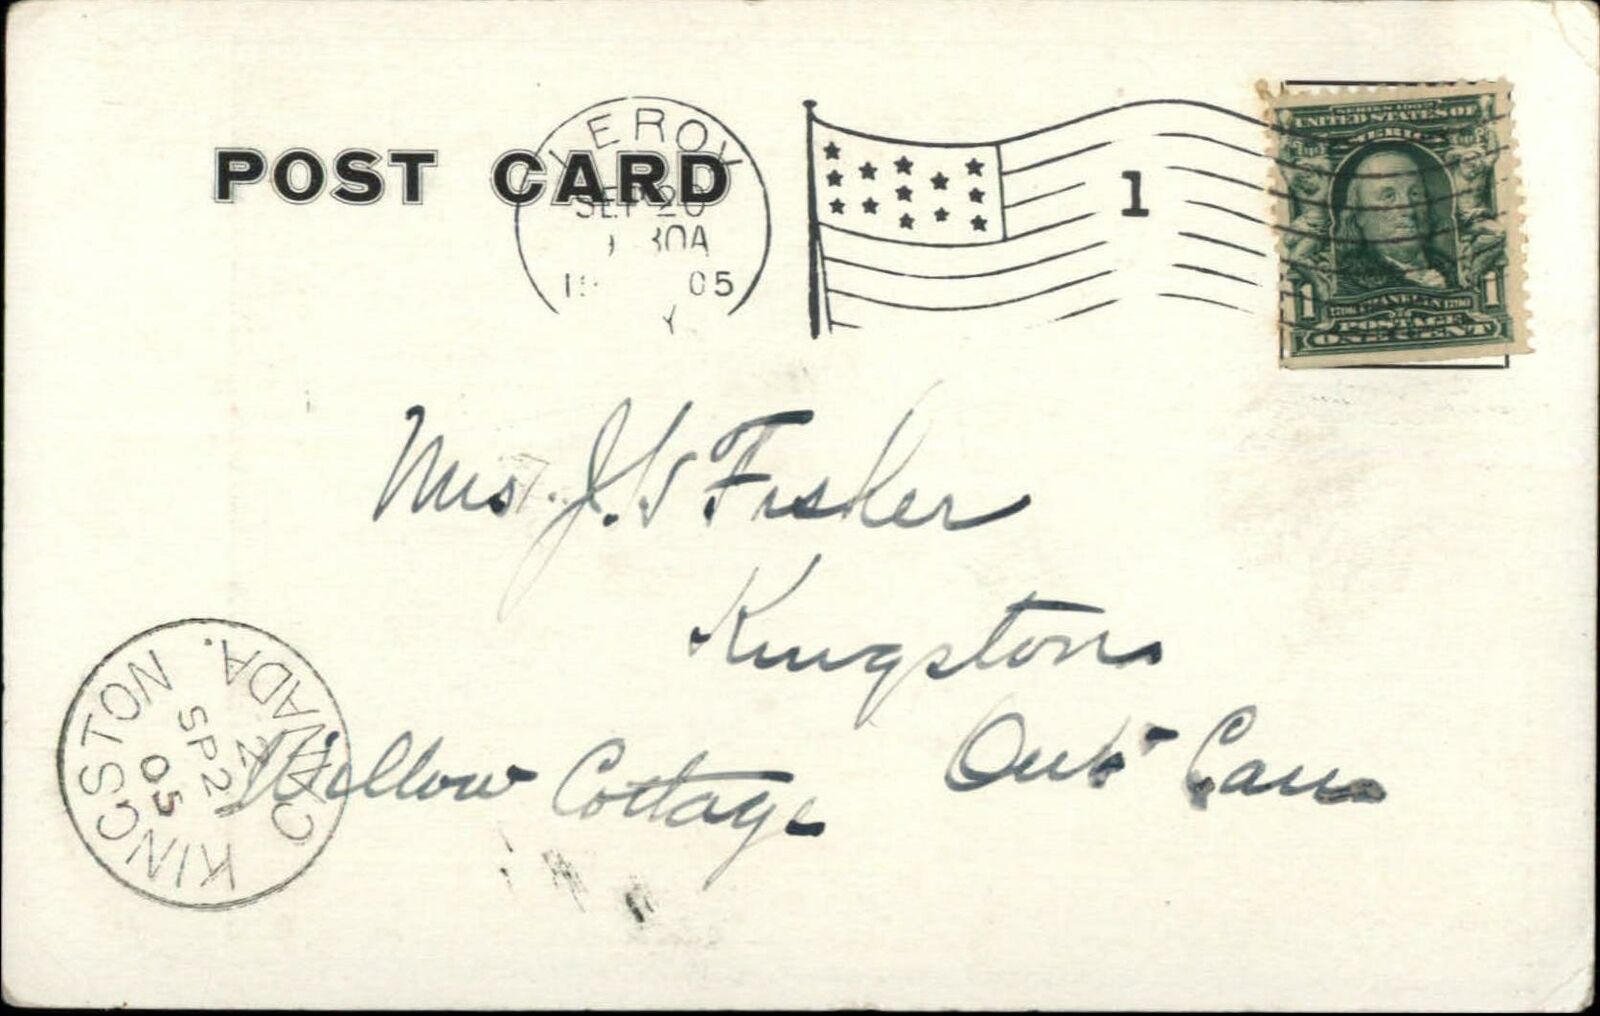 POST CARD
LEROY
SEP 20
30A
05
Y
1
SERIES 1902
UNITED STATES OF
AMERICA
1706 FRANKLIN 1790
1 1
POSTAGE
ONE CENT
Mrs. J. S Fisher
Kingston
Ont Can
Willow Cottage
KINGSTON CANADA.
SP 21
05